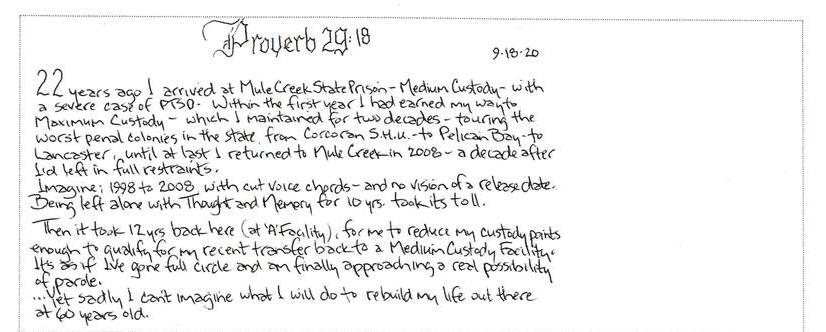 Proverb 29:18
9-18-20
22 years ago I arrived at Mule Creek State Prison - Medium Custody - with
a severe case of PTSD. Within the first year I had earned my way to
Maximum Custody - which I maintained for two decades - touring the
worst penal colonies in the state, from Corcoran S.H.U. - to Pelican Bay - to
Lancaster, until at last I returned to Mule Creek in 2008 - a decade after
I'd left in full restraints.
Imagine; 1998 to 2008, with cut voice chords - and no vision of a release date.
Being left alone with Thought and Memory for 10 yrs. took its toll.
Then it took 12 yrs back here (at 'A' Facility), for me to reduce my custody points
enough to qualify for my recent transfer back to a Medium Custody Facility.
It's as if I've gone full circle and am finally approaching a real possibility
of parole.
...Yet sadly I can't imagine what I will do to rebuild my life out there
at 60 years old.